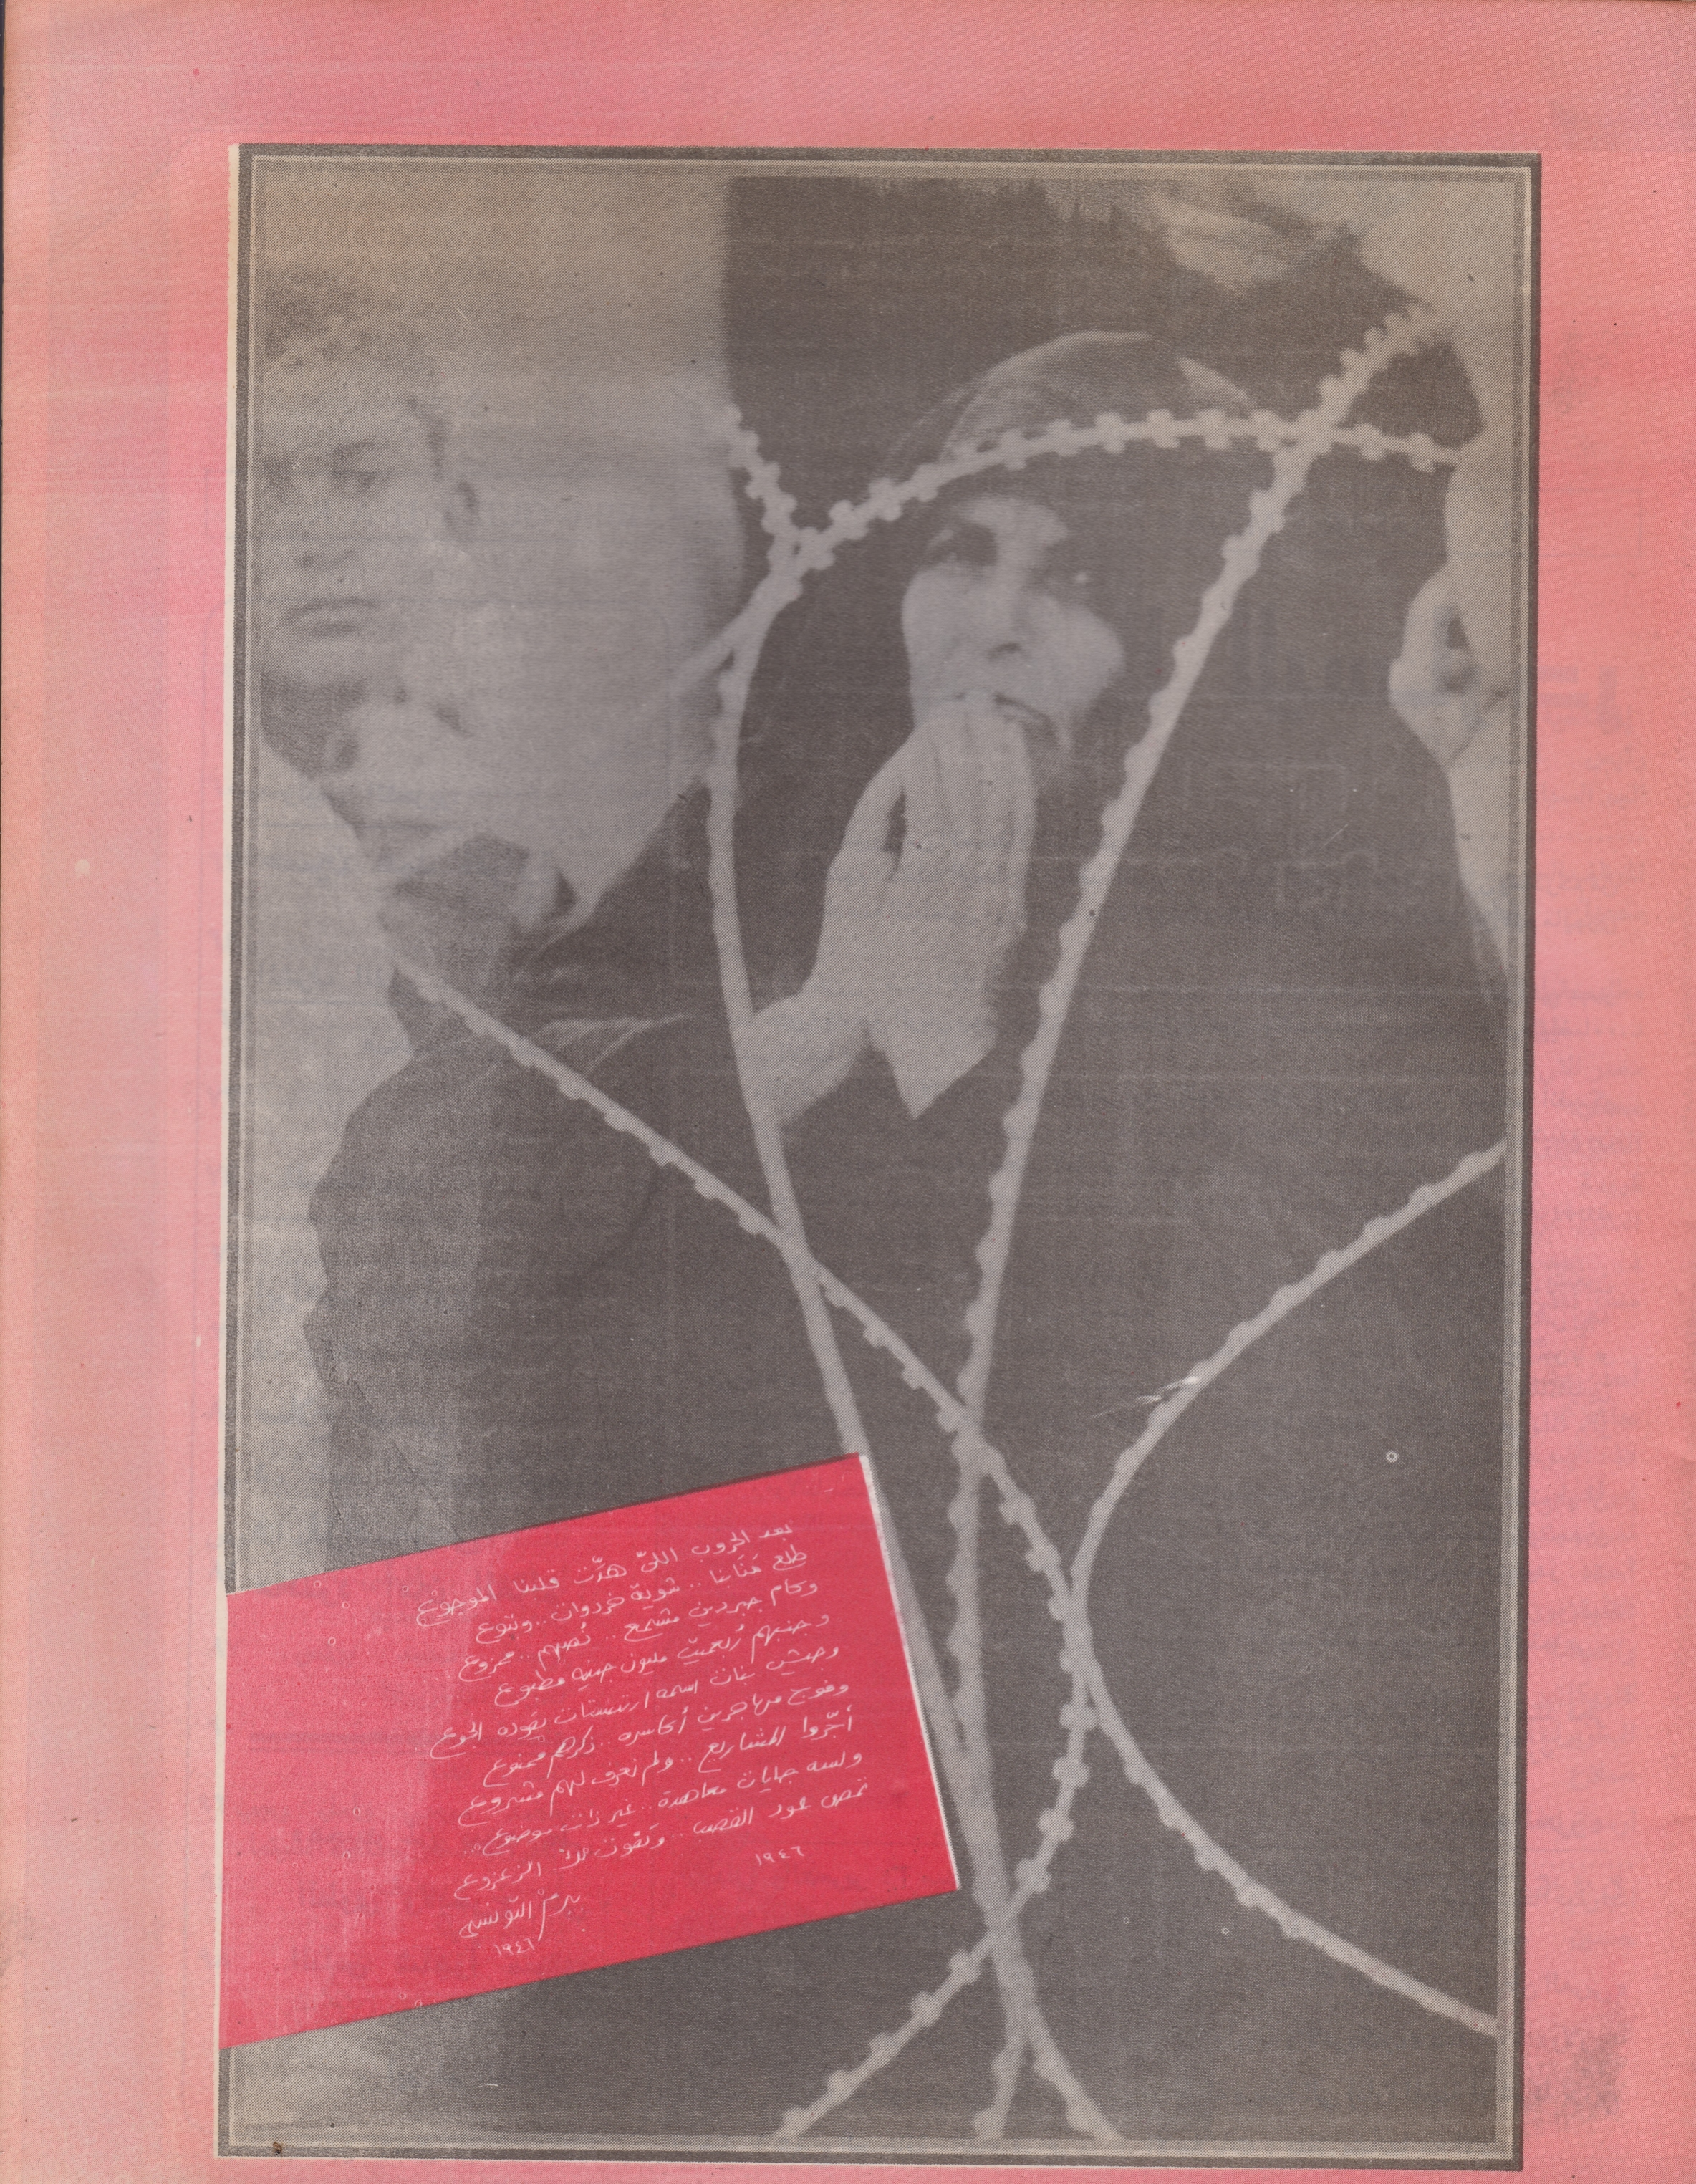 بعد الحروب اللىّ هدّت قلبنا الموجوع
طلع قنانا .. شوية خردوات .. وتنوع
وكام جبردين مشمع .. نُصهم .. مخزوع
وجنبهم رُبعميّت مليون جنيه مطبوع
وجيش بنات اسمه ارتستات يقوده الجوع
وفوج مهاجرين أكاسره .. ذكرهم ممنوع
أجّروا المشاريع .. ولم نعرف لهم مشروع
ولسه جايات معاهدة .. غير ذات موضوع ..
نمص عود القصب .. وتفوت لك الزعزوع
١٩٤٦
بيرم التّونسى
١٩٤٦